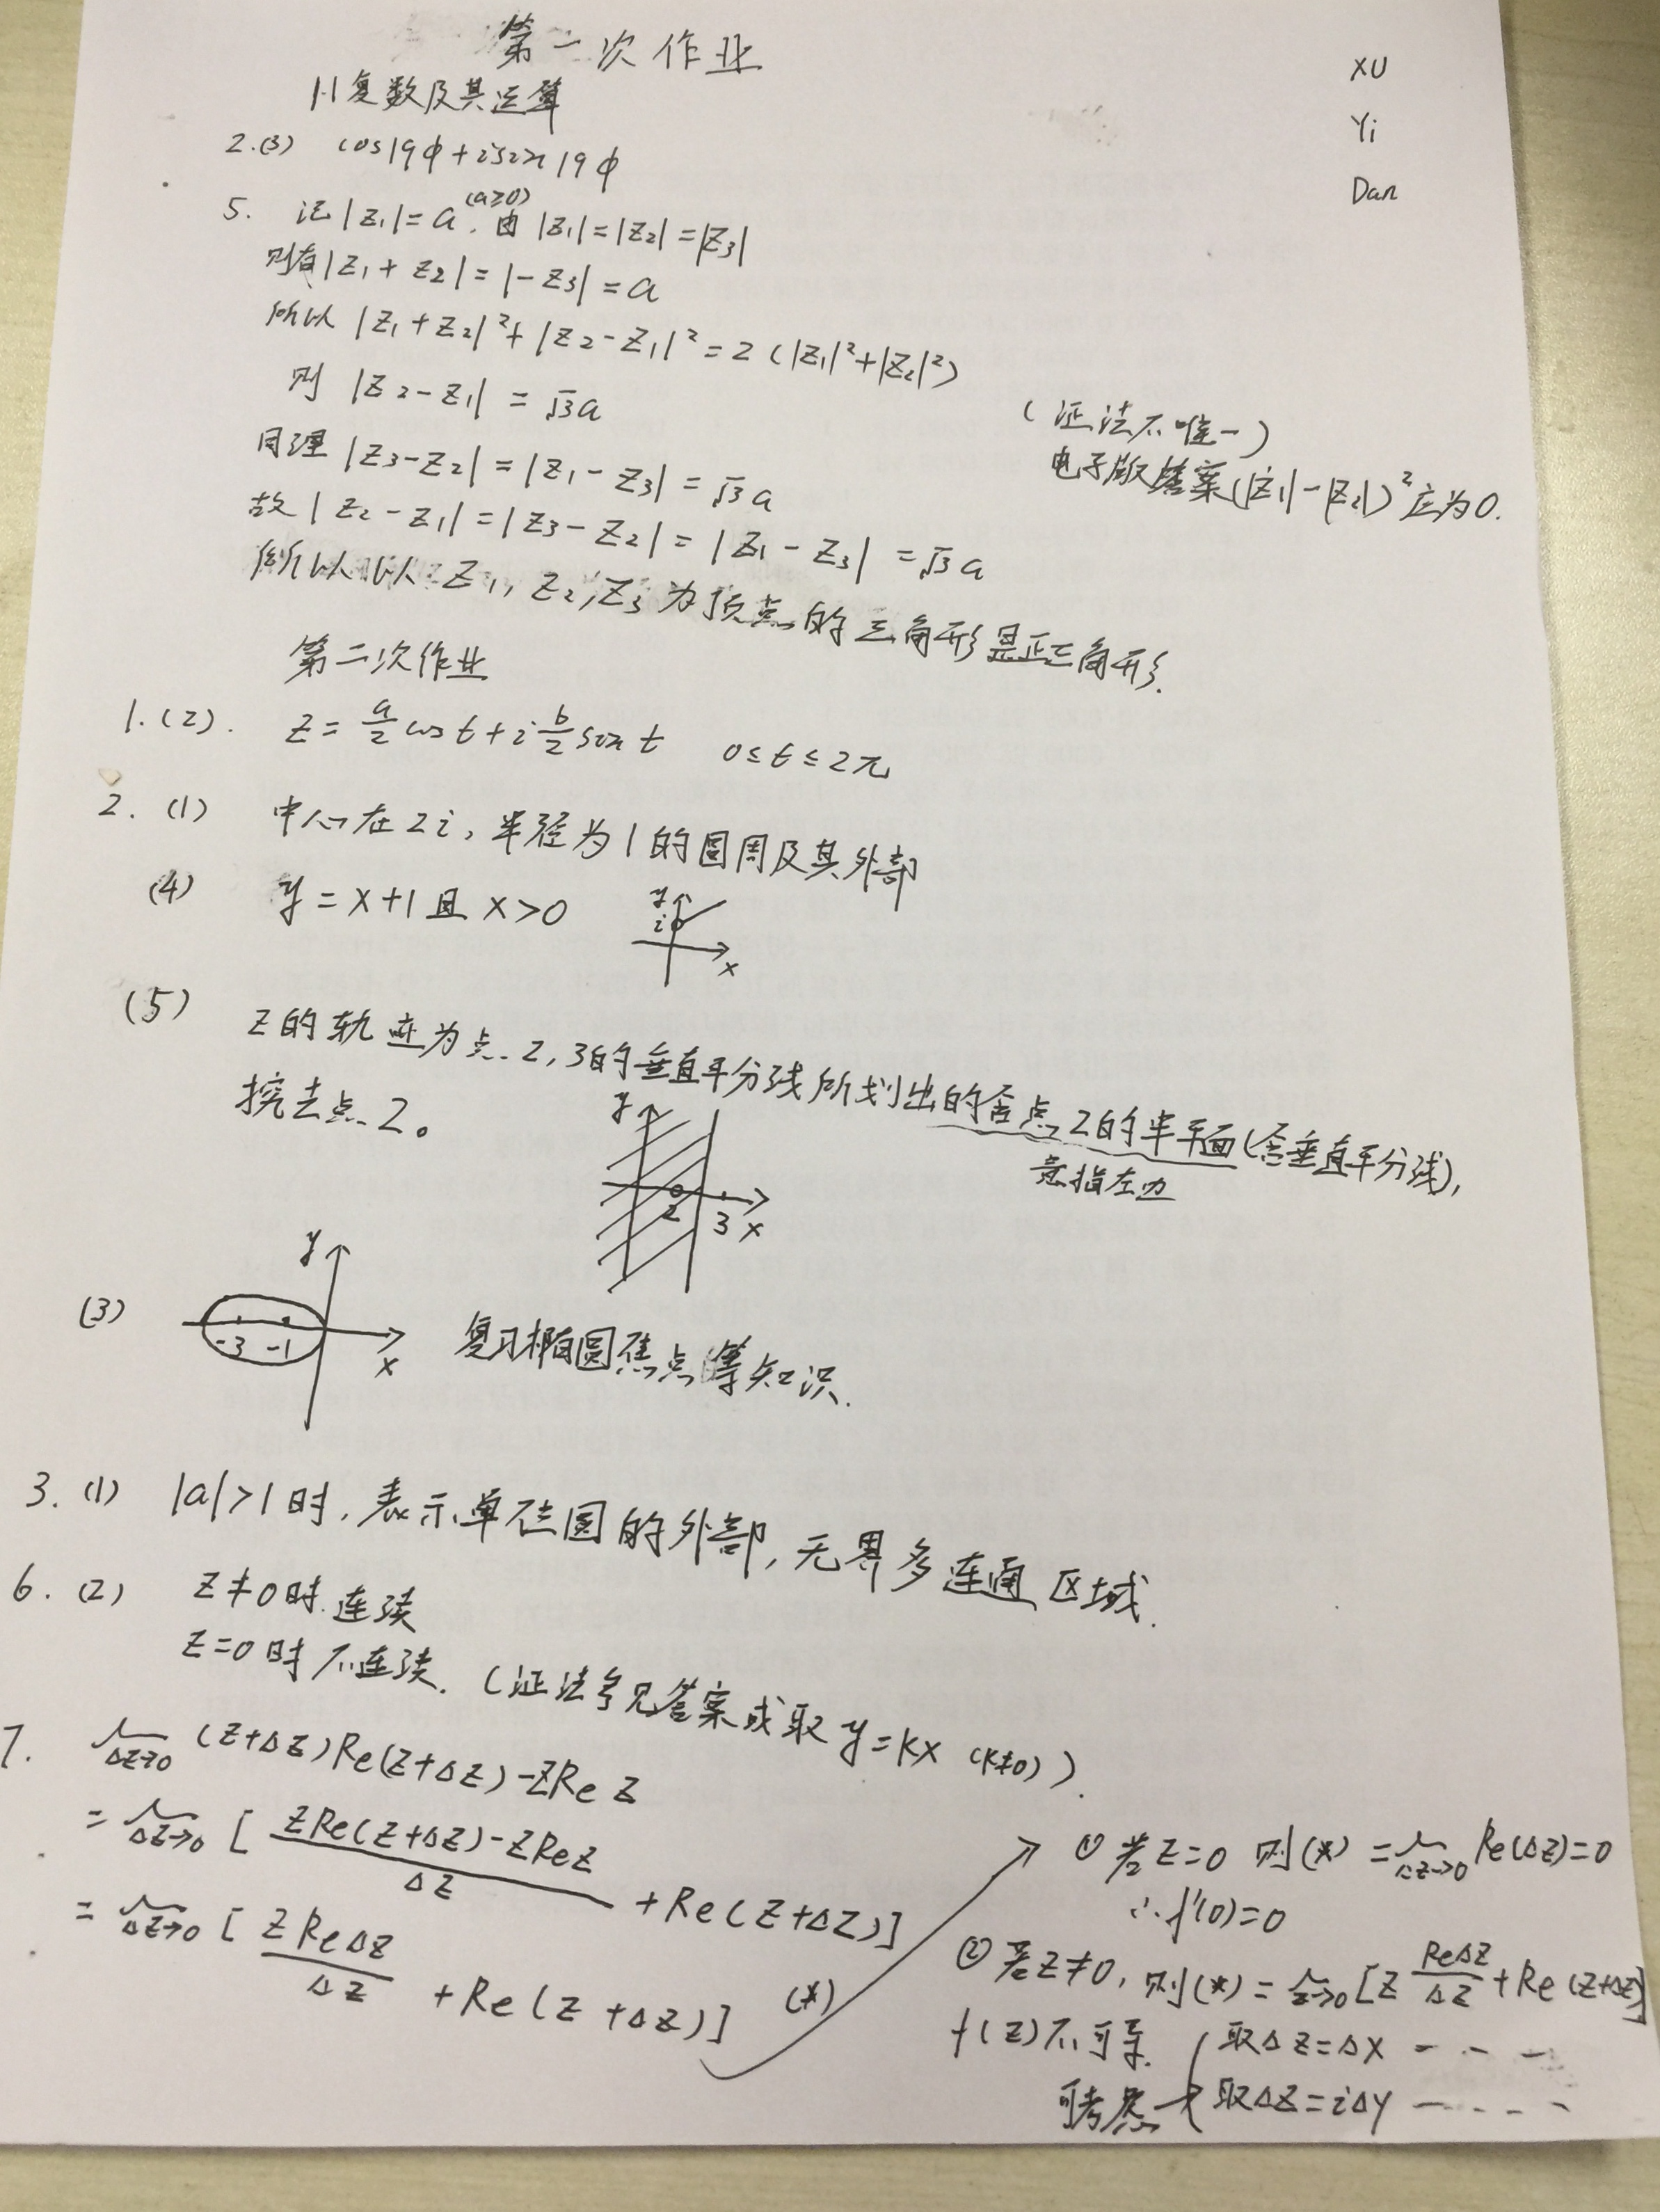 第一次作业
XU
Yi
Dan
1.1 复数及其运算
2.(3) cos19φ+isin19φ
5. 记|z₁|=a (a≥0). 由|z₁|=|z₂|=|z₃|
则有|z₁+z₂|=|-z₃|=a
所以 |z₁+z₂|²+|z₂-z₁|²=2(|z₁|²+|z₂|²)
则 |z₂-z₁|=√3a
(证法不唯一)
电子版答案(|z₁|-|z₂|)²应为0.
同理|z₃-z₂|=|z₁-z₃|=√3a
故|z₂-z₁|=|z₃-z₂|=|z₁-z₃|=√3a
所以以z₁,z₂,z₃为顶点的三角形是正三角形.
第二次作业
1.(2). z=a/2 cost+i b/2 sint 0≤t≤2π
2.(1) 中心在2i,半径为1的圆周及其外部
(4) y=x+1且x>0
y
i
x
(5) z的轨迹为点2,3的垂直平分线所划出的含点2的半平面(含垂直平分线),
意指左边
挖去点2。
y
0
2 3 x
(3) y
-3 -1 x
复习椭圆焦点等知识.
3.(1) |a|>1时,表示单位圆的外部,无界多连通区域.
6.(2) z≠0时连续
z=0时不连续.(证法参见答案或取y=kx (k≠0)).
7. lim Δz→0 (z+Δz)Re(z+Δz)-zRe z
= lim Δz→0 [ (zRe(z+Δz)-zRez)/Δz +Re(z+Δz)]
= lim Δz→0 [ zReΔz/Δz +Re(z+Δz)] (*)
① 若z=0 则(*)= lim Δz→0 Re(Δz)=0
∴f'(0)=0
② 若z≠0,则(*)= lim z→0 [z ReΔz/Δz +Re(z+Δz)]
f(z)不可导.
可考虑 { 取Δz=Δx - - -
取Δz=iΔy - - - -